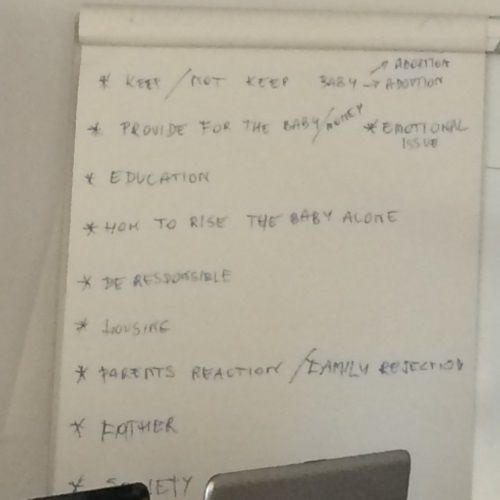 * KEEP / NOT KEEP BABY → ABORTION
→ ADOPTION
* PROVIDE FOR THE BABY/MONEY * EMOTIONAL
ISSUE
* EDUCATION
* HOW TO RISE THE BABY ALONE
* BE RESPONSIBLE
* HOUSING
* PARENTS REACTION / FAMILY REJECTION
* FATHER
* SOCIETY